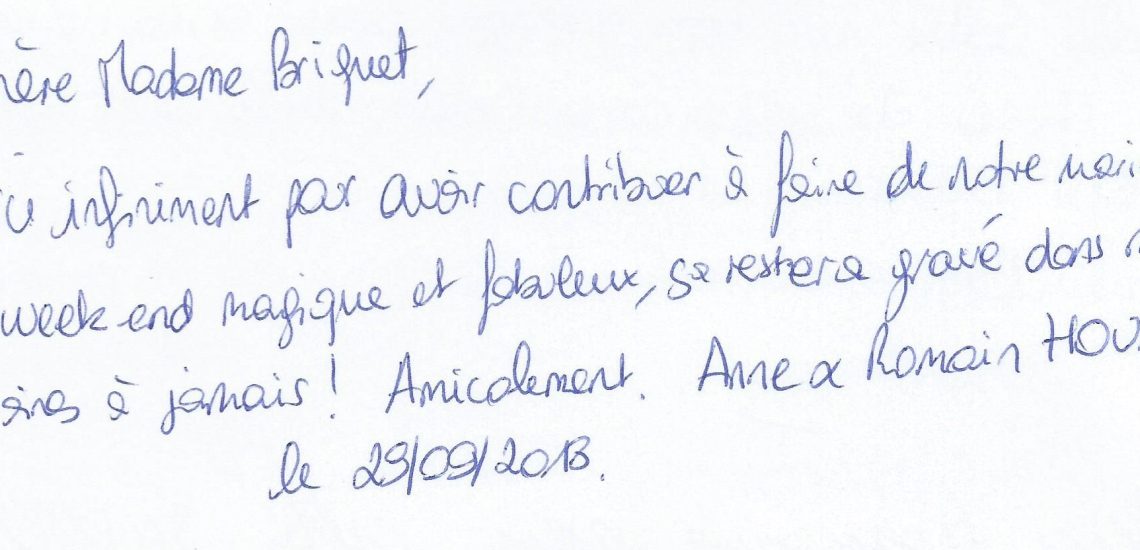 ère Madame Briquet,
infiniment par avoir contribuer à faire de notre mari
week-end magique et fabuleux, sa restera gravé dans
à jamais! Amicalement. Anne & Romain HOU
le 29/09/2013.